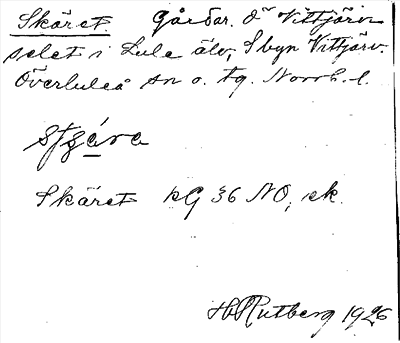 Skäret. Gårdar. Ö Vittjärv
selet i Lule älv, S byn Vittjärv.
Överluleå sn o. tg. Norrb. l.
Skäret kG 36 NO, ek.
H Rutberg 1926